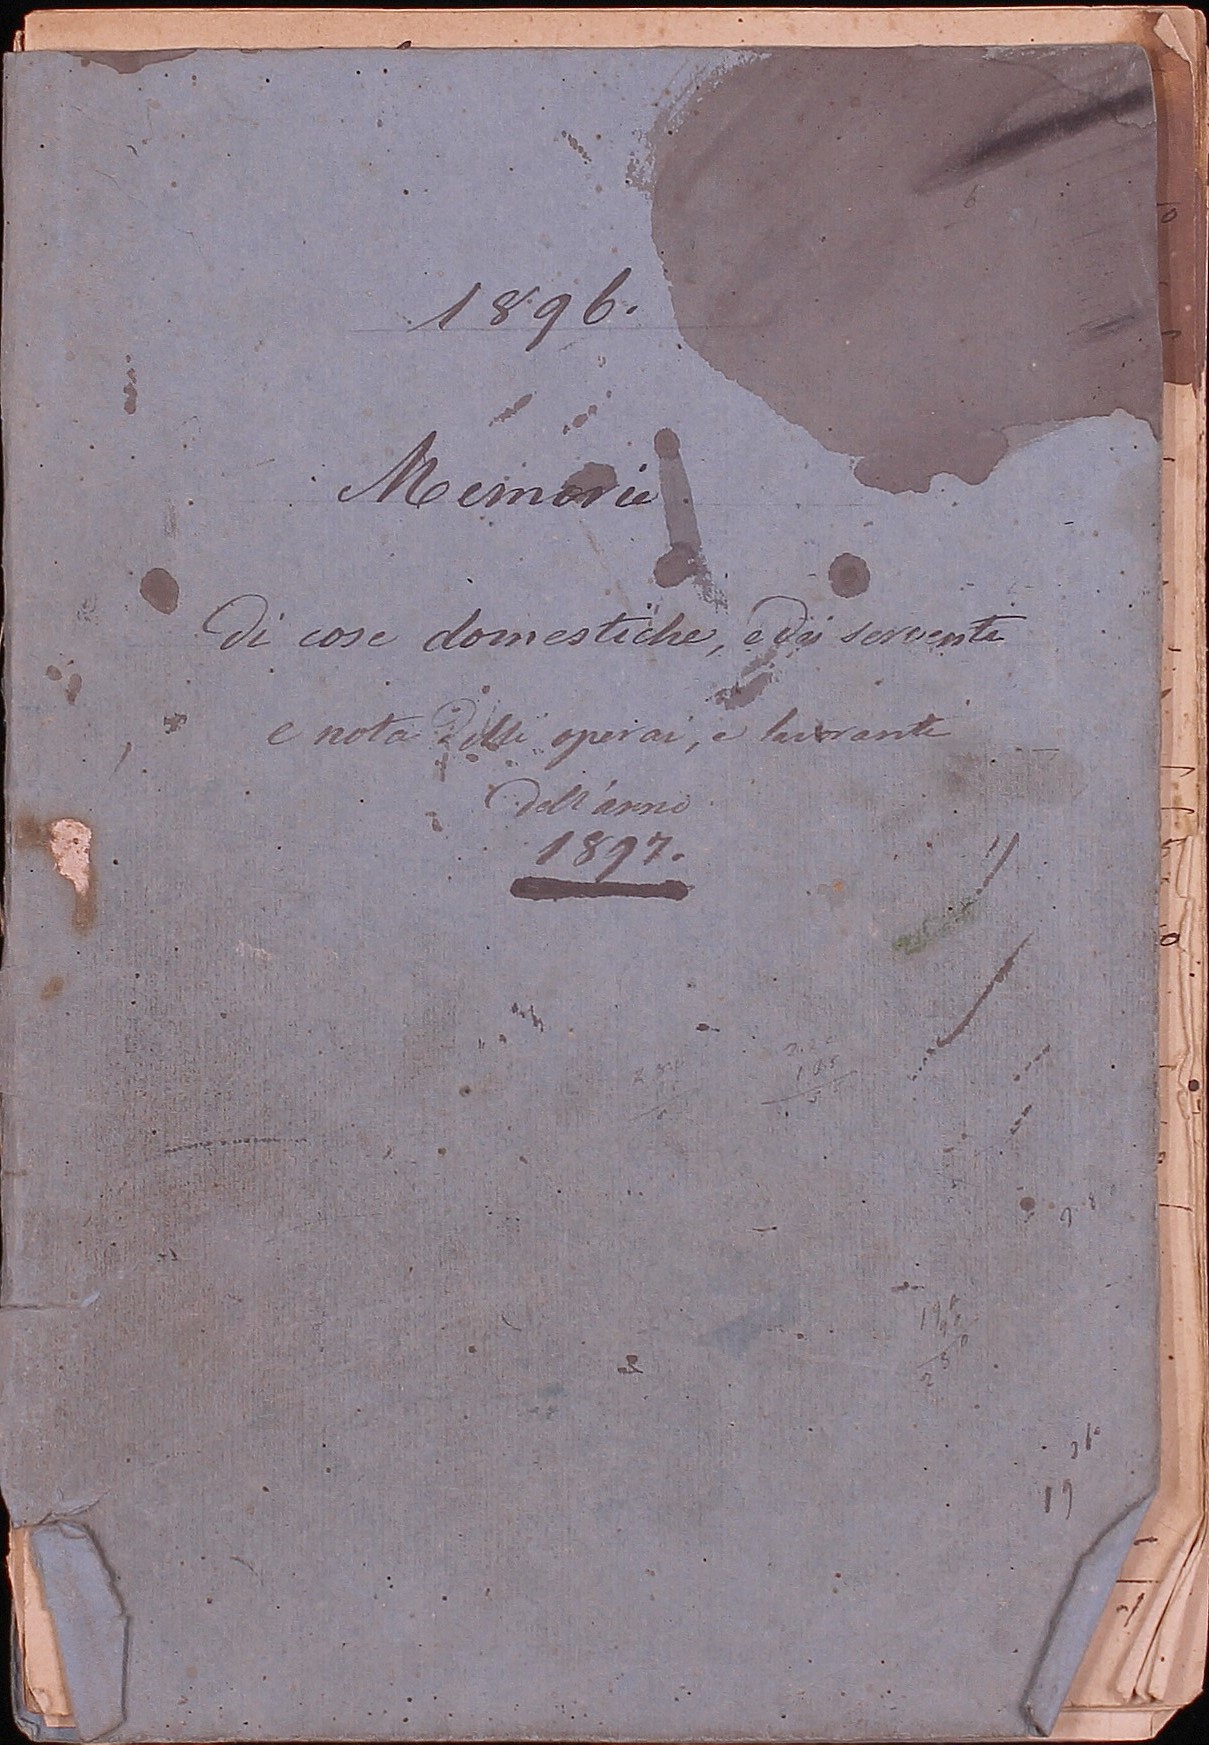 1896.
Memorie
Di cose domestiche, e dei servente
e nota delli operai, e lavoranti
dell'anno
1897.
19